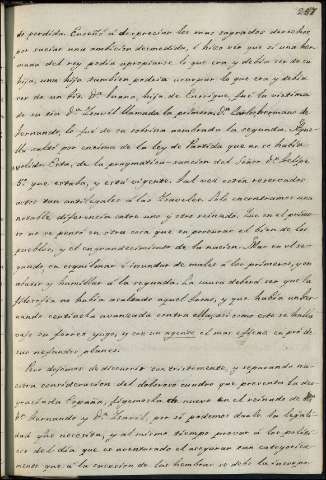 257
de perdida. Enseñó á despreciar los mas sagrados derechos
por saciar una ambicion desmedida, é hizo ver que si una her
mana del rey podia apropiarse lo que era y debia ser de su
hija, una hija tambien podria usurpar lo que era y debia
ser de un tio. Dª Juana, hija de Enrique, fué la víctima
de su tia Dª Isavél llamada la primera; Dn Carlos hermano de
Fernando, lo fué de su sobrina nombrada la segunda. Aque
lla saltó por encima de la ley de Partida que no se habia
abolido. Esta, de la pragmática-sancion del Señor Dn Felipe
5º que estaba, y está vigente. Tal vez están reservados
actos tan antilegales á las Isaveles. Solo encontramos una
notable diferencia entre uno y otro reinado. Que en el prime
ro no se pensó en otra cosa que en procurar el bien de los
pueblos, y el engrandecimiento de la nacion. Mas en el se
gundo en esquilmar é inundar de males á los primeros, y en
abatir y humillar á la segunda. La causa deberá ser que la
filosofia no habia acabado aquel lazo, y que habia
nando centinela avanzada contra ella, así como esta se halla
bajo su férreo yugo, y es un agente el mas eficaz en pró de
sus nefandos planes.
Pero dejemos de discurrir tan tristemente, y separando nu
estra consideracion del doloroso cuadro que presenta la des
graciada España, fijemosla de nuevo en el reinado de
Dn Fernando y Dª Isavél, por si podemos darle la legali
dad que necesita, y al mismo tiempo provar á los políti
cos del dia que es aventurado el asegurar tan categórica
mente que á la sucesion de las hembras se debe la incorpo